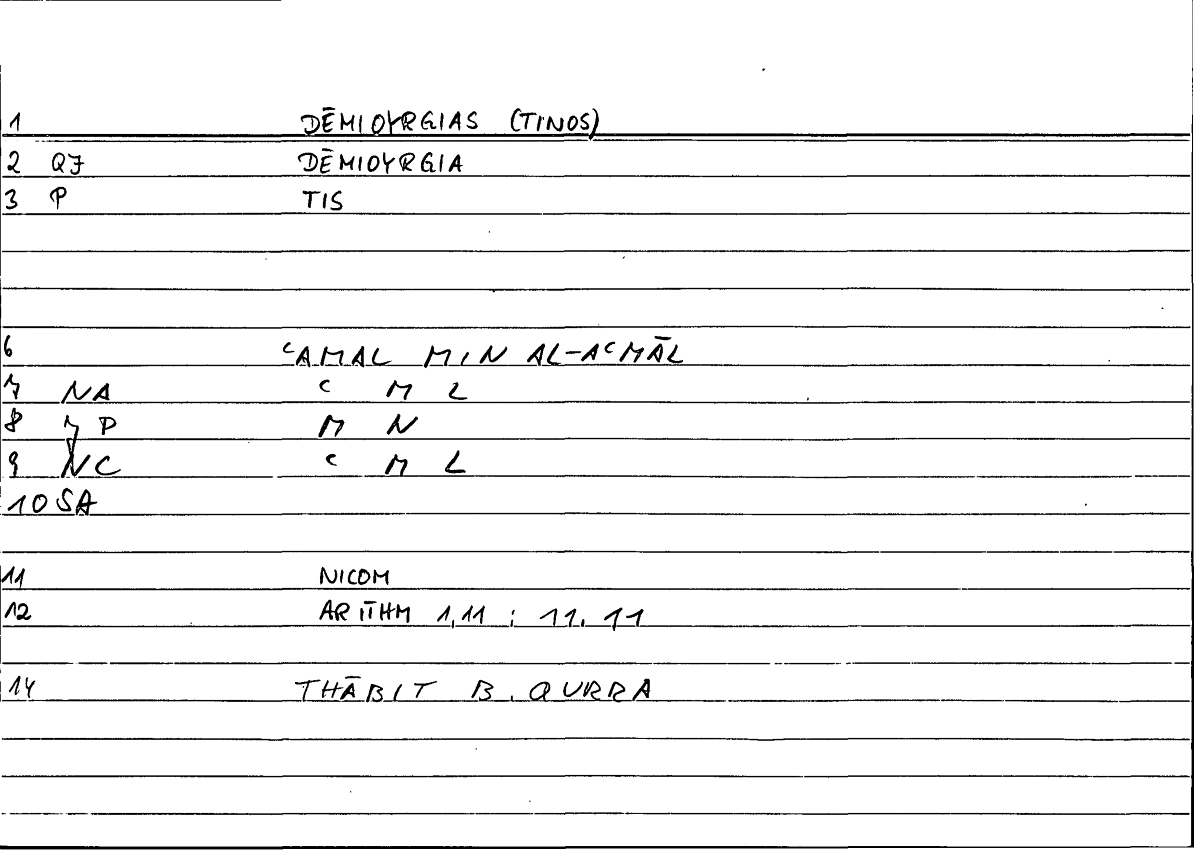 1 DĒMIOYRGIAS (TINOS)
2 QJ DĒMIOYRGIA
3 P TIS
6 ʿAMAL MIN AL-AʿMĀL
7 NA ʿ M L
8 7 P M N
9 NC ʿ M L
10 SA
11 NICOM
12 ARITHM 1,11 ; 11. 11
14 THĀBIT B. QURRA